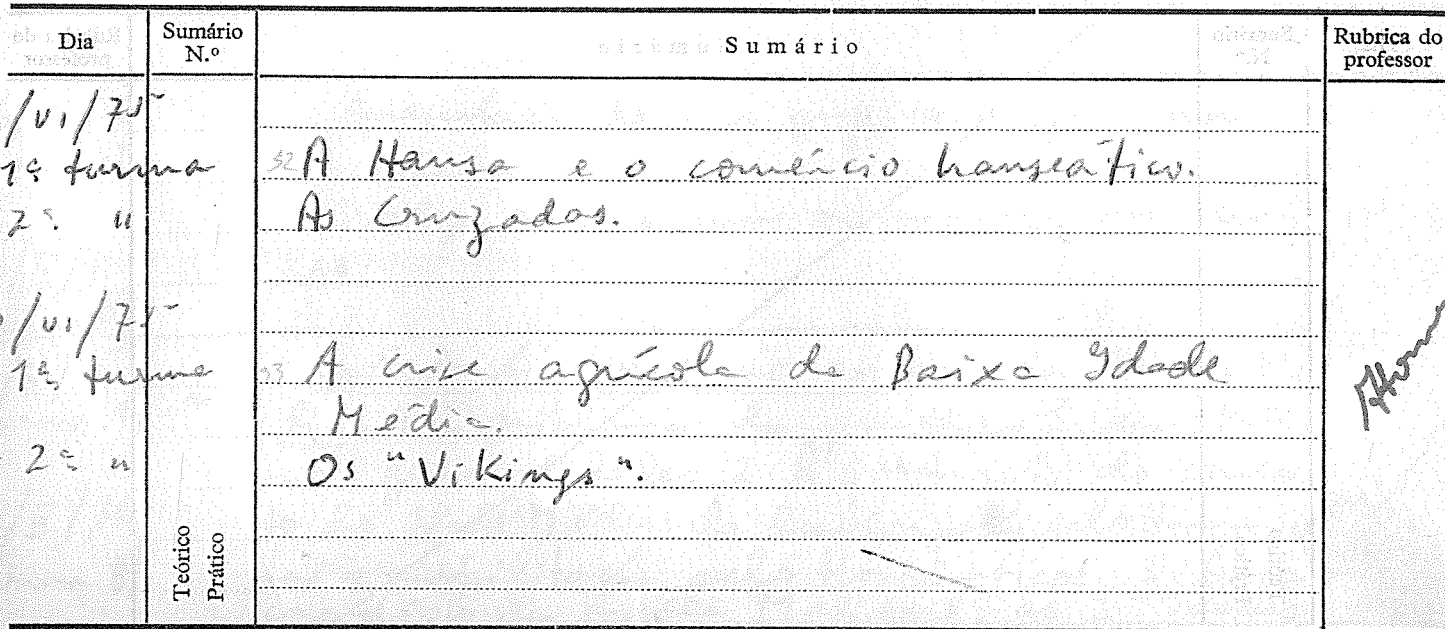 Dia Sumário N.º Sumário Rubrica do professor
/VI/75
1ª turma 52 A Hansa e o comércio hanseático.
2ª " As Cruzadas.
/VI/75
1ª turma 53 A crise agrícola da Baixa Idade
Média.
2ª " Os "Vikings".
Teórico
Prático